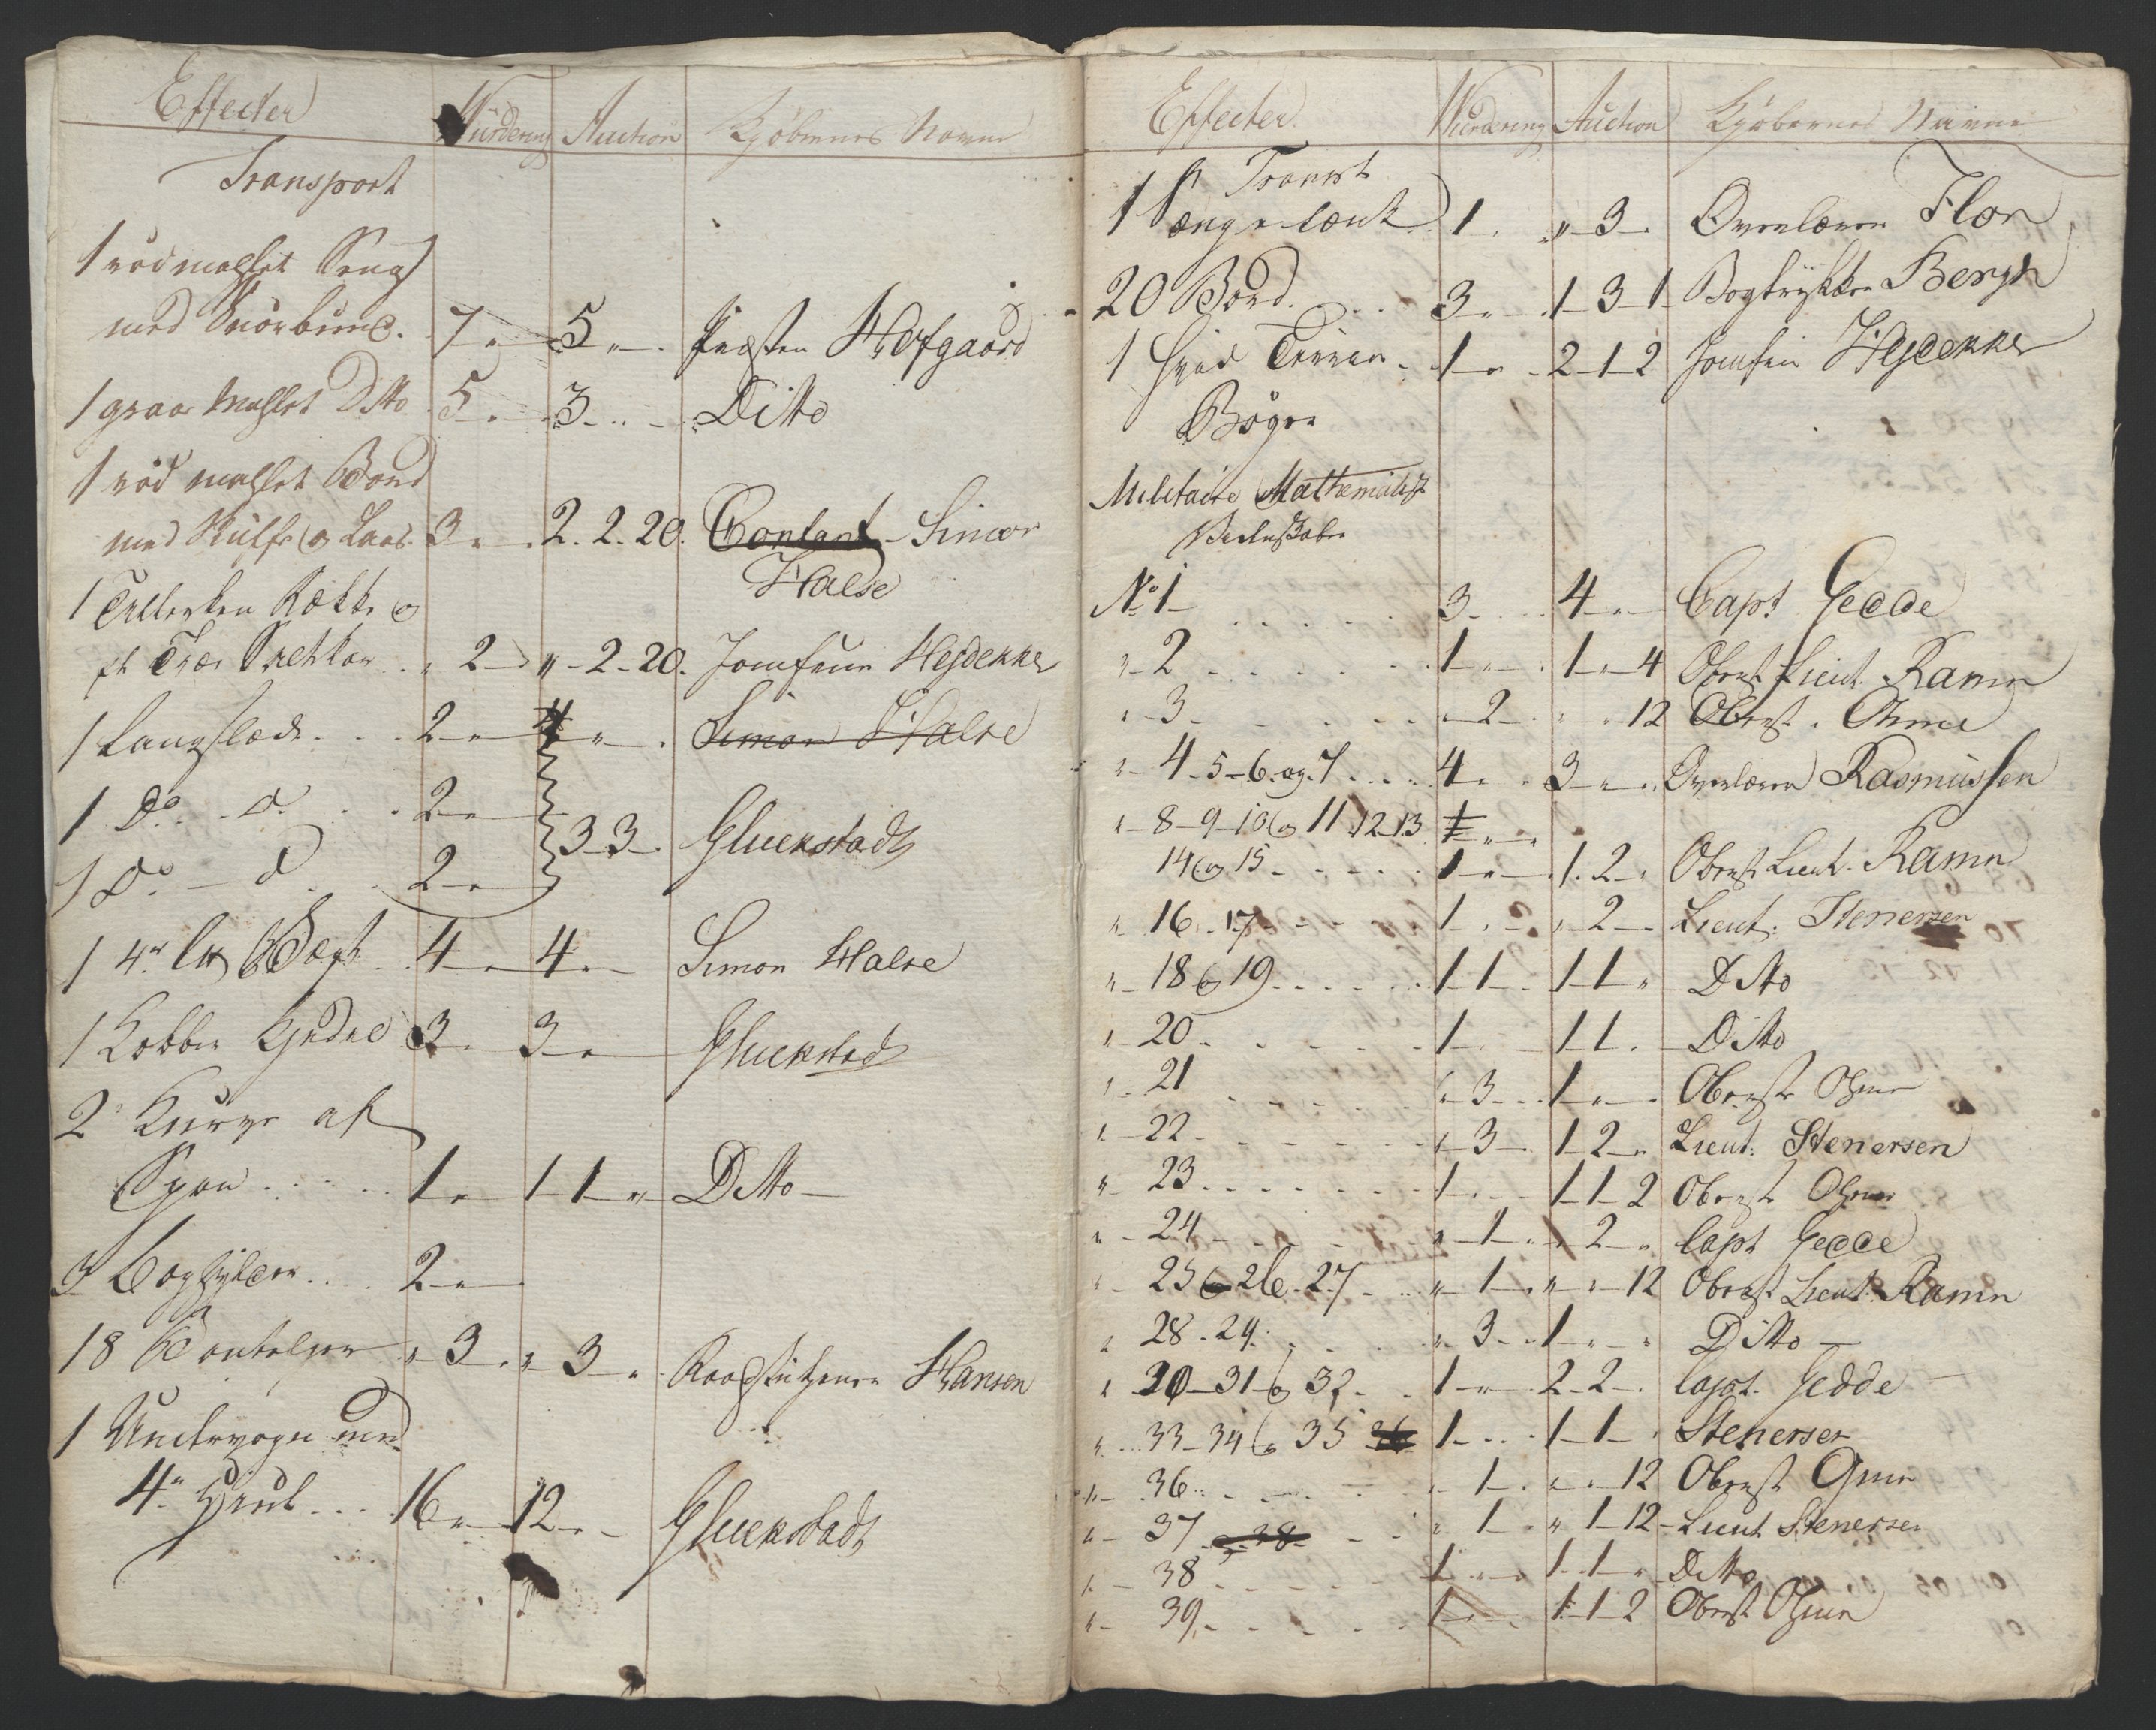 Effecter Wurdering Auction Kjøbernes Navne
Transport
1 rød mahlet Seng
med Snorbund. 7 „ 5 „ Præsten Hofgaard
1 graae mahlet Ditto 5 „ 3 „ Ditto
1 rød mahlet Bord
med Skuffe og Laas. 3 „ 2. 2. 20. Contant - Simon
Halse
1 Tallerken Række og
et Træe . „ 2 „ - 2 - 20. Jomfrue Hejdekker
1 Langslæde 2 „ 4 „ Simon Halse
1 Do - d 2 „
3 3 Gluckstadt
1 Do - d 2 „
1 4 4 „ 4 „ Simon Halse
1 Kobber Kjedel 3 „ 3 „ Gluckstad
2 Kurve af
Spon 1 „ 1 - 1 „ Ditto
3 2 „
18 „ 3 „ „ 3 „ Hansen
1 Undervogn med
4 Hiul 16 „ 12 „ Gluckstadt
Effecter. Wurdering Auction Kjøbernes Navne
Transpt
1 Hængelænk 1 „ „ 3 Overlærer Flor
20 Bord. 3 „ 1 - 3 - 1 Bogtrykker Bergh
1 hvid 1 „ 2 - 1 - 2 Jomfru Hejdekker
Bøger
Militaire Mathematiske
Videnskaber
No 1 3 4 „ Capt Gedde
„ 2 1 „ 1 „ 4 Oberst Lieut. Ramm
„ 3 „ 2 „ „ 12 Oberst. Ohme
„ 4 - 5 - 6. og. 7 4 „ 3 „ Overlærer Rasmussen
„ 8 - 9 - 10 og 11. 12 - 13
14 og 15 1 „ 1. 2 „ Oberst Lieut. Ramm
„ 16. 17 1 „ „ 2 „ Lieut: Stenersen
„ 18 og 19 1 1 1 1 „ Ditto
„ 20 1 1 1 Ditto
„ 21 „ 3 1 „ Oberst Ohme
„ 22 „ 3 1 2 „ Lieut: Stenersen
„ 23 1 1 1 2 Oberst Ohme
„ 24 „ 1 „ „ 2 „ Capt Gedde
„ 25 og 26. 27 „ 1 „ „ 12 Oberst Lieut. Ramm
„ 28. 29. „ 3 1 „ „ Ditto
„ 30 - 31 og 32 1 „ 2 - 2 Capt. Gedde
„ 33 - 34 og 35 36 1 1 - 1 Stenersen
„ 36 „ 1 „ „ 12 Oberst Ohme
„ 37 og 38 „ 1 „ 1 - 12 Lieut Stenersen
„ 38 1 „ 1. 1 „ Ditto
„ 39 1 „ 1 - 1 - 2 Oberst Ohme